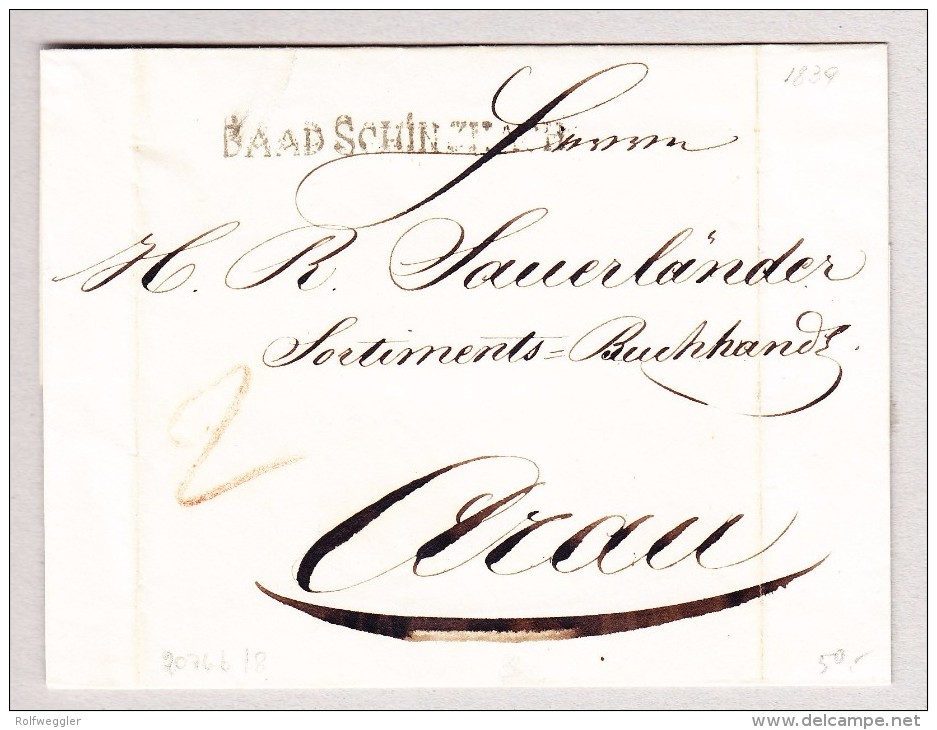 1839
BAAD SCHINZNACH
Herrn
H. R. Sauerländer
Sortiments=Buchhandl.
2
Arau
2076b/8
50.-
Rolfweggler
www.delcampe.net